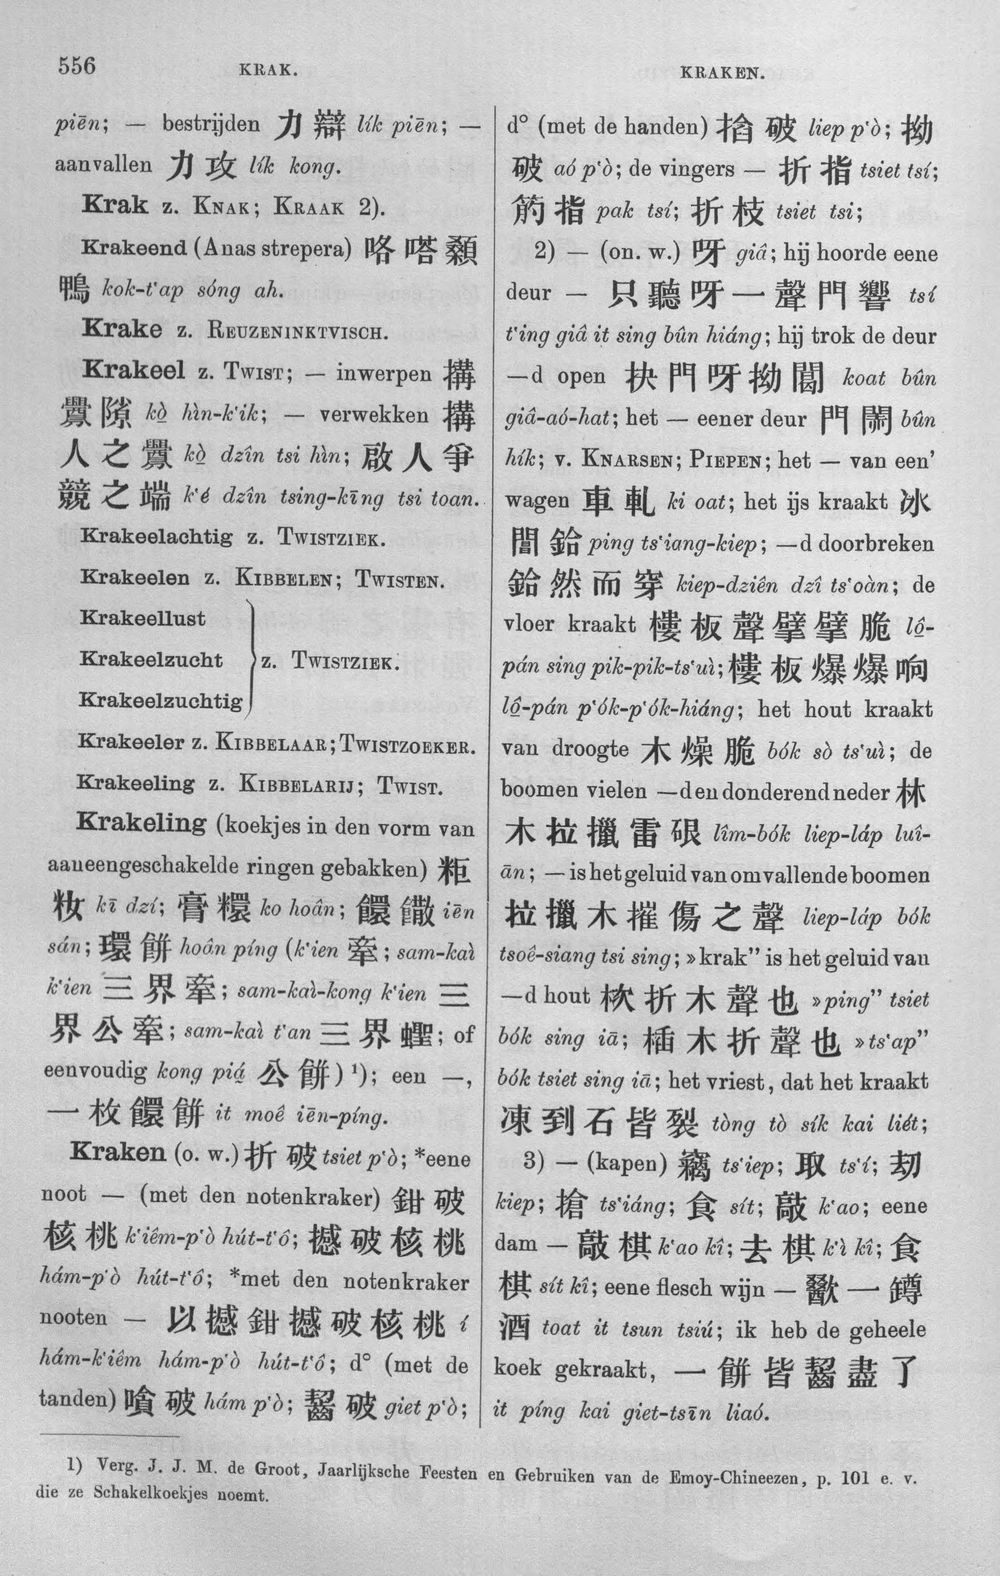 556
KRAK.
KRAKEN.
piēn; — bestrijden 力辯 lík piēn; —
aanvallen 力攻 lík kong.
Krak z. KNAK; KRAAK 2).
Krakeend (Anas strepera) 咯嗒顙
鴨 kok-t‘ap sóng ah.
Krake z. REUZENINKTVISCH.
Krakeel z. TWIST; — inwerpen 搆
釁隙 kò̤ hìn-k‘ik; — verwekken 搆
人之釁 kò̤ dzîn tsi hìn; 啟人爭
競之端 k‘é dzîn tsing-kīng tsi toan.
Krakeelachtig z. TWISTZIEK.
Krakeelen z. KIBBELEN; TWISTEN.
Krakeellust
Krakeelzucht z. TWISTZIEK.
Krakeelzuchtig
Krakeeler z. KIBBELAAR; TWISTZOEKER.
Krakeeling z. KIBBELARIJ; TWIST.
Krakeling (koekjes in den vorm van
aaneengeschakelde ringen gebakken) 粔
籹 kī dzí; 膏糫 ko hoân; 饌饊 iēn
sán; 環餅 hoân píng (k‘ien 牽; sam-kaì
k‘ien 三界牽; sam-kaì-kong k‘ien 三
界公牽; sam-kaì t‘an 三界蟶; of
eenvoudig kong piá̤ 公餅) ¹); een —,
一枚饌餅 it moê iēn-píng.
Kraken (o. w.) 折破 tsiet p‘ò; *eene
noot — (met den notenkraker) 鉗破
核桃 k‘iêm-p‘ò hút-t‘ô; 撼破核桃
hám-p‘ò hút-t‘ô; *met den notenkraker
nooten — 以撼鉗撼破核桃 í
hám-k‘iêm hám-p‘ò hút-t‘ô; d° (met de
tanden) 嗿破 hám p‘ò; 齧破 giet p‘ò;
d° (met de handen) 拾破 liep p‘ò; 拗
破 aó p‘ò; de vingers — 折指 tsiet tsí;
筋指 pak tsí; 折枝 tsiet tsi;
2) — (on. w.) 呀 giâ; hij hoorde eene
deur — 只聽呀一聲門響 tsí
t‘ing giâ it sing bûn hiáng; hij trok de deur
—d open 抉門呀拗閤 koat bûn
giâ-aó-hat; het — eener deur 門鬩 bûn
hík; v. KNARSEN; PIEPEN; het — van een’
wagen 車軋 ki oat; het ijs kraakt 冰
閶鉿 ping ts‘iang-kiep; —d doorbreken
鉿然而穿 kiep-dziên dzî ts‘oàn; de
vloer kraakt 樓板聲擘擘脆 lô̤-
pán sing pik-pik-ts‘uì; 樓板爆爆响
lô̤-pán p‘ók-p‘ók-hiáng; het hout kraakt
van droogte 木燥脆 bók sò ts‘uì; de
boomen vielen —den donderend neder 林
木拉攞雷硠 lîm-bók liep-láp luî-
ān; — is het geluid van omvallende boomen
拉攞木摧傷之聲 liep-láp bók
tsoê-siang tsi sing; »krak” is het geluid van
—d hout 栨折木聲也 »ping” tsiet
bók sing iā; 插木折聲也 »ts‘ap”
bók tsiet sing iā; het vriest, dat het kraakt
凍到石皆裂 tòng tò sík kai liét;
3) — (kapen) 竊 ts‘iep; 取 ts‘í; 刧
kiep; 搶 ts‘iáng; 食 sít; 敲 k‘ao; eene
dam — 敲棋 k‘ao kî; 去棋 k‘ì kî; 食
棋 sít kî; eene flesch wijn — 歠一鐏
酒 toat it tsun tsiú; ik heb de geheele
koek gekraakt, 一餅皆齧盡了
it píng kai giet-tsīn liaó.
1) Verg. J. J. M. de Groot, Jaarlijksche Feesten en Gebruiken van de Emoy-Chineezen, p. 101 e. v.
die ze Schakelkoekjes noemt.